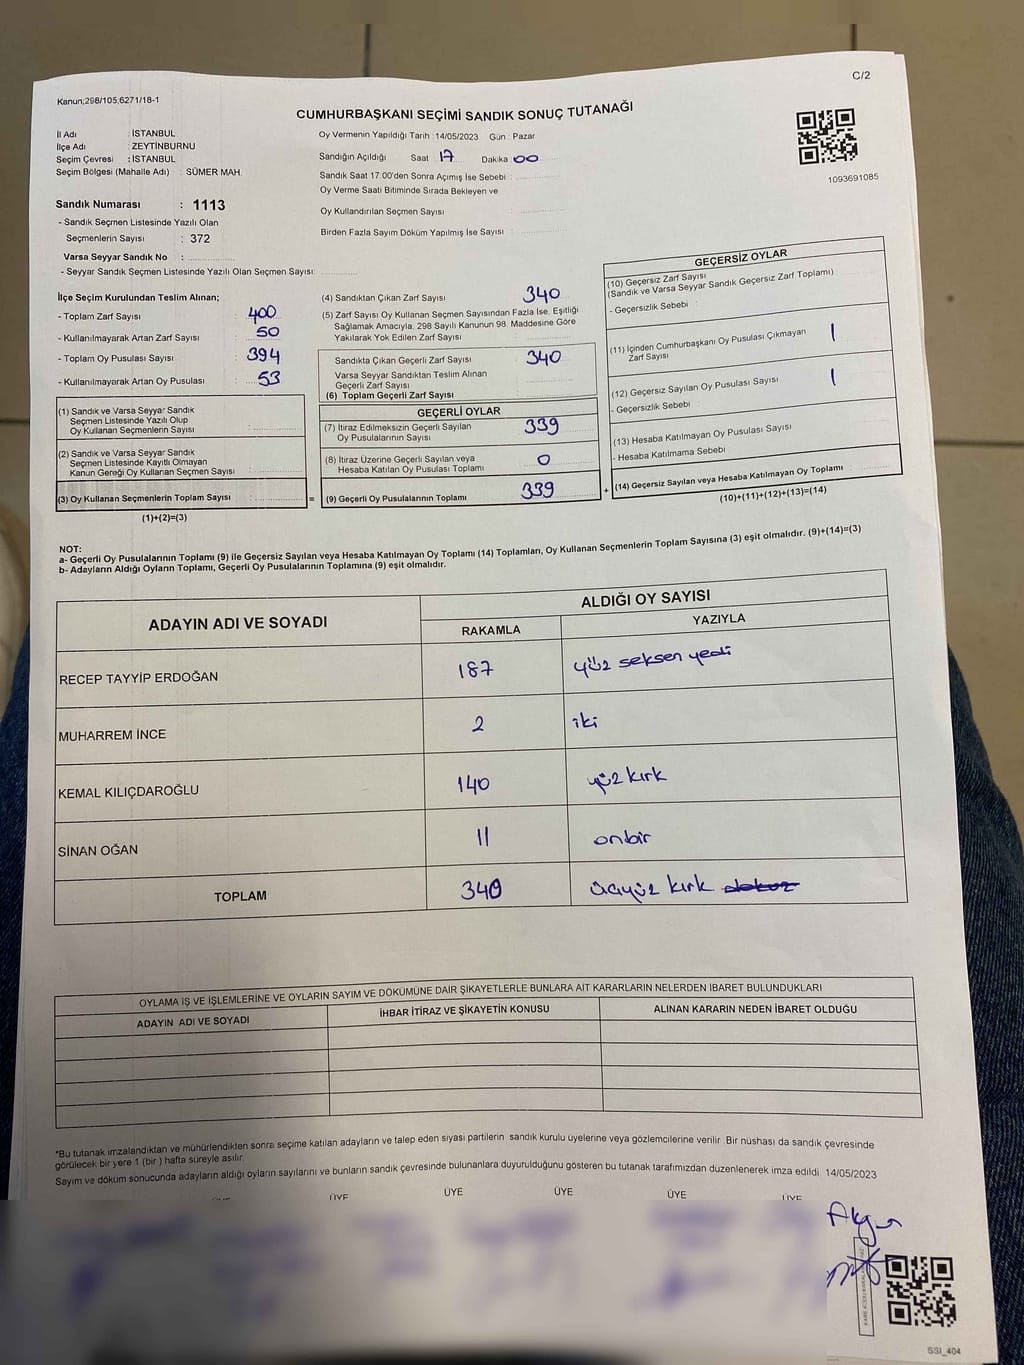 C/2
Kanun;298/105,6271/18-1
CUMHURBAŞKANI SEÇİMİ SANDIK SONUÇ TUTANAĞI
İl Adı : İSTANBUL
İlçe Adı : ZEYTİNBURNU
Seçim Çevresi : İSTANBUL
Seçim Bölgesi (Mahalle Adı) : SÜMER MAH.
Sandık Numarası : 1113
- Sandık Seçmen Listesinde Yazılı Olan
Seçmenlerin Sayısı : 372
Varsa Seyyar Sandık No :
- Seyyar Sandık Seçmen Listesinde Yazılı Olan Seçmen Sayısı:
Oy Vermenin Yapıldığı Tarih :14/05/2023 Gün : Pazar
Sandığın Açıldığı Saat 17 Dakika 00
Sandık Saat 17:00'den Sonra Açımış İse Sebebi :
Oy Verme Saati Bitiminde Sırada Bekleyen ve
Oy Kullandırılan Seçmen Sayısı :
Birden Fazla Sayım Döküm Yapılmış İse Sayısı :
1093691085
İlçe Seçim Kurulundan Teslim Alınan;
- Toplam Zarf Sayısı : 400
- Kullanılmayarak Artan Zarf Sayısı : 50
- Toplam Oy Pusulası Sayısı : 394
- Kullanılmayarak Artan Oy Pusulası : 53
(1) Sandık ve Varsa Seyyar Sandık
Seçmen Listesinde Yazılı Olup
Oy Kullanan Seçmenlerin Sayısı :
(2) Sandık ve Varsa Seyyar Sandık
Seçmen Listesinde Kayıtlı Olmayan
Kanun Gereği Oy Kullanan Seçmen Sayısı :
(3) Oy Kullanan Seçmenlerin Toplam Sayısı : =
(1)+(2)=(3)
(4) Sandıktan Çıkan Zarf Sayısı 340
(5) Zarf Sayısı Oy Kullanan Seçmen Sayısından Fazla İse, Eşitliği
Sağlamak Amacıyla, 298 Sayılı Kanunun 98. Maddesine Göre
Yakılarak Yok Edilen Zarf Sayısı :
Sandıkta Çıkan Geçerli Zarf Sayısı 340
Varsa Seyyar Sandıktan Teslim Alınan
Geçerli Zarf Sayısı
(6) Toplam Geçerli Zarf Sayısı
GEÇERLİ OYLAR
(7) İtiraz Edilmeksizin Geçerli Sayılan
Oy Pusulalarının Sayısı 339
(8) İtiraz Üzerine Geçerli Sayılan veya
Hesaba Katılan Oy Pusulası Toplamı 0
(9) Geçerli Oy Pusulalarının Toplamı 339 +
GEÇERSİZ OYLAR
(10) Geçersiz Zarf Sayısı
(Sandık ve Varsa Seyyar Sandık Geçersiz Zarf Toplamı) :
- Geçersizlik Sebebi :
(11) İçinden Cumhurbaşkanı Oy Pusulası Çıkmayan
Zarf Sayısı 1
(12) Geçersiz Sayılan Oy Pusulası Sayısı 1
- Geçersizlik Sebebi
(13) Hesaba Katılmayan Oy Pusulası Sayısı
- Hesaba Katılmama Sebebi
(14) Geçersiz Sayılan veya Hesaba Katılmayan Oy Toplamı :
(10)+(11)+(12)+(13)=(14)
NOT:
a- Geçerli Oy Pusulalarının Toplamı (9) ile Geçersiz Sayılan veya Hesaba Katılmayan Oy Toplamı (14) Toplamları, Oy Kullanan Seçmenlerin Toplam Sayısına (3) eşit olmalıdır. (9)+(14)=(3)
b- Adayların Aldığı Oyların Toplamı, Geçerli Oy Pusulalarının Toplamına (9) eşit olmalıdır.
ADAYIN ADI VE SOYADI ALDIĞI OY SAYISI
RAKAMLA YAZIYLA
RECEP TAYYİP ERDOĞAN 187 yüz seksen yedi
MUHARREM İNCE 2 iki
KEMAL KILIÇDAROĞLU 140 yüz kırk
SİNAN OĞAN 11 onbir
TOPLAM 340 üçyüz kırk dokuz
OYLAMA İŞ VE İŞLEMLERİNE VE OYLARIN SAYIM VE DÖKÜMÜNE DAİR ŞİKAYETLERLE BUNLARA AİT KARARLARIN NELERDEN İBARET BULUNDUKLARI
ADAYIN ADI VE SOYADI İHBAR İTİRAZ VE ŞİKAYETİN KONUSU ALINAN KARARIN NEDEN İBARET OLDUĞU
*Bu tutanak imzalandıktan ve mühürlendikten sonra seçime katılan adayların ve talep eden siyasi partilerin sandık kurulu üyelerine veya gözlemcilerine verilir. Bir nüshası da sandık çevresinde
görülecek bir yere 1 (bir ) hafta süreyle asılır.
Sayım ve döküm sonucunda adayların aldığı oyların sayılarını ve bunların sandık çevresinde bulunanlara duyurulduğunu gösteren bu tutanak tarafımızdan düzenlenerek imza edildi. 14/05/2023
ÜYE ÜYE ÜYE ÜYE ÜYE
SSI_404